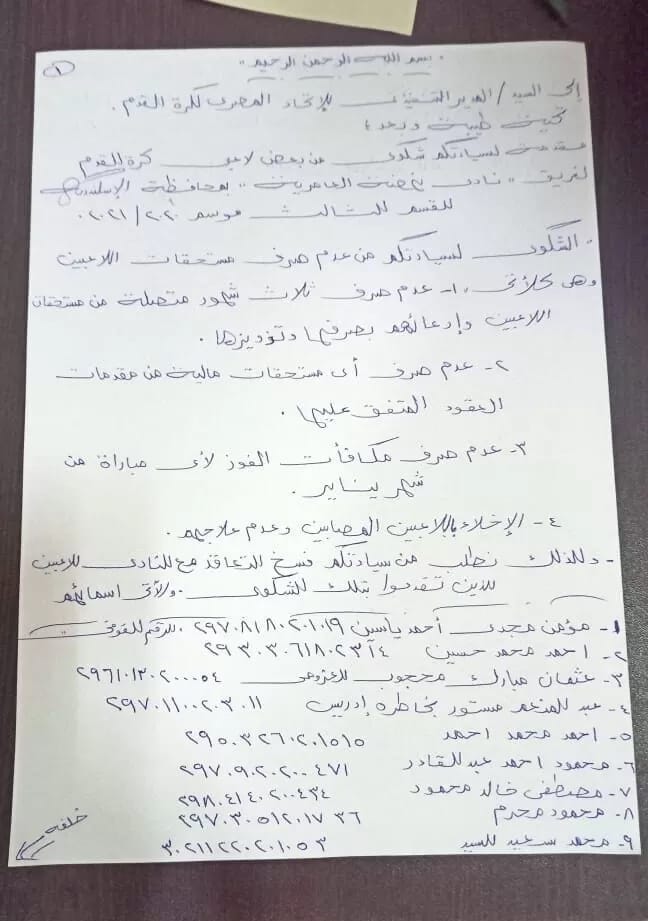 ١
بسم الله الرحمن الرحيم
إلى السيد / المدير التنفيذى للإتحاد المصرى لكرة القدم .
تحية طيبة وبعد ؛
مقدمة لسيادتكم شكوى من بعض لاعبى كرة القدم
لفريق " نادى نهضة العامرية " بمحافظة الإسكندرية
للقسم الثالث موسم ٢٠٢٠ / ٢٠٢١ .
. الشكوى لسيادتكم من عدم صرف مستحقات اللاعبين
وهى كالأتى ١- عدم صرف ثلاث شهور متصلة من مستحقات
اللاعبين وإدعائهم بصرفها وتزويرها .
٢- عدم صرف أى مستحقات مالية من مقدمات
العقود المتفق عليها .
٣- عدم صرف مكافأت الفوز لأى مباراة من
شهر يناير .
٤- الإخلاء باللاعبين المصابين وعدم علاجهم .
- ولذلك نطلب من سيادتكم فسخ التعاقد مع النادى للاعبين
الذين تقدموا بتلك الشكوى . والأتى اسمائهم
١- مؤمن مجدى أحمد ياسين ٢٩٧٠٨١٨٠٢٠١٠١٩ . الرقم القومى
٢- احمد محمد حسين
٣- عثمان مبارك محجوب ٢٩٦١٠١٣٠٢٠٠٠٥٤
٤- عبد المنعم مستور بخاطره إدريس ٢٩٧٠١١٠٠٢٠٣٠١١
٥- احمد محمد احمد ٢٩٥٠٣٢٦٠٢٠١٥١٥
٦- محمود احمد عبد القادر ٢٩٧٠٩٠٢٠٢٠٠٤٧١
٧- مصطفى خالد محمود ٢٩٨٠٤١٤٠٢٠٠٤٣٤
٨- محمود محرم ٢٩٧٠٣٠٥١٢٠١٧٣٦
٩- محمد سعيد السيد ٣٠٢١١٢٢٠٢٠١٠٥٣
خلفه